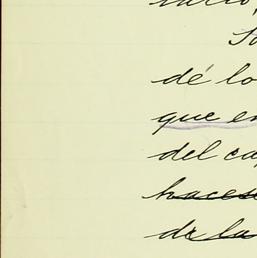 dé lo
que en
del ca
hacese
de la